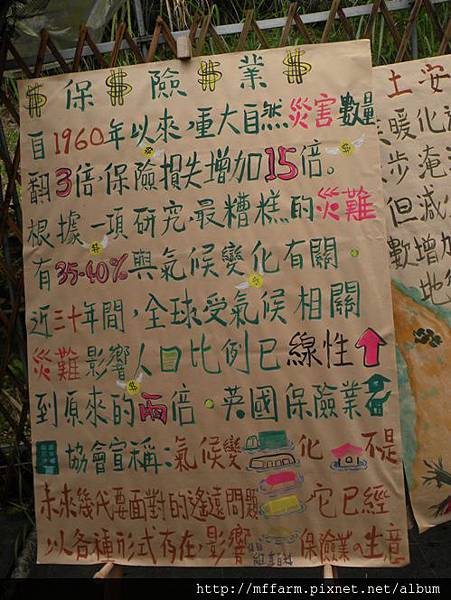 $保$險$業$
自1960年以來,重大自然災害數量
翻3倍.保險損失增加15倍。
根據一項研究,最糟糕的災難
有35-40%與氣候變化有關.
近三十年間,全球受氣候相關
災難影響人口比例已線性
到原來的兩倍。英國保險業
協會宣稱:氣候變化不是
未來幾代要面對的遙遠問題,它已經
以各種形式存在,影響保險業の生意
土安
暖化
步淹
但減
數增加
地
http://mffarm.pixnet.net/album